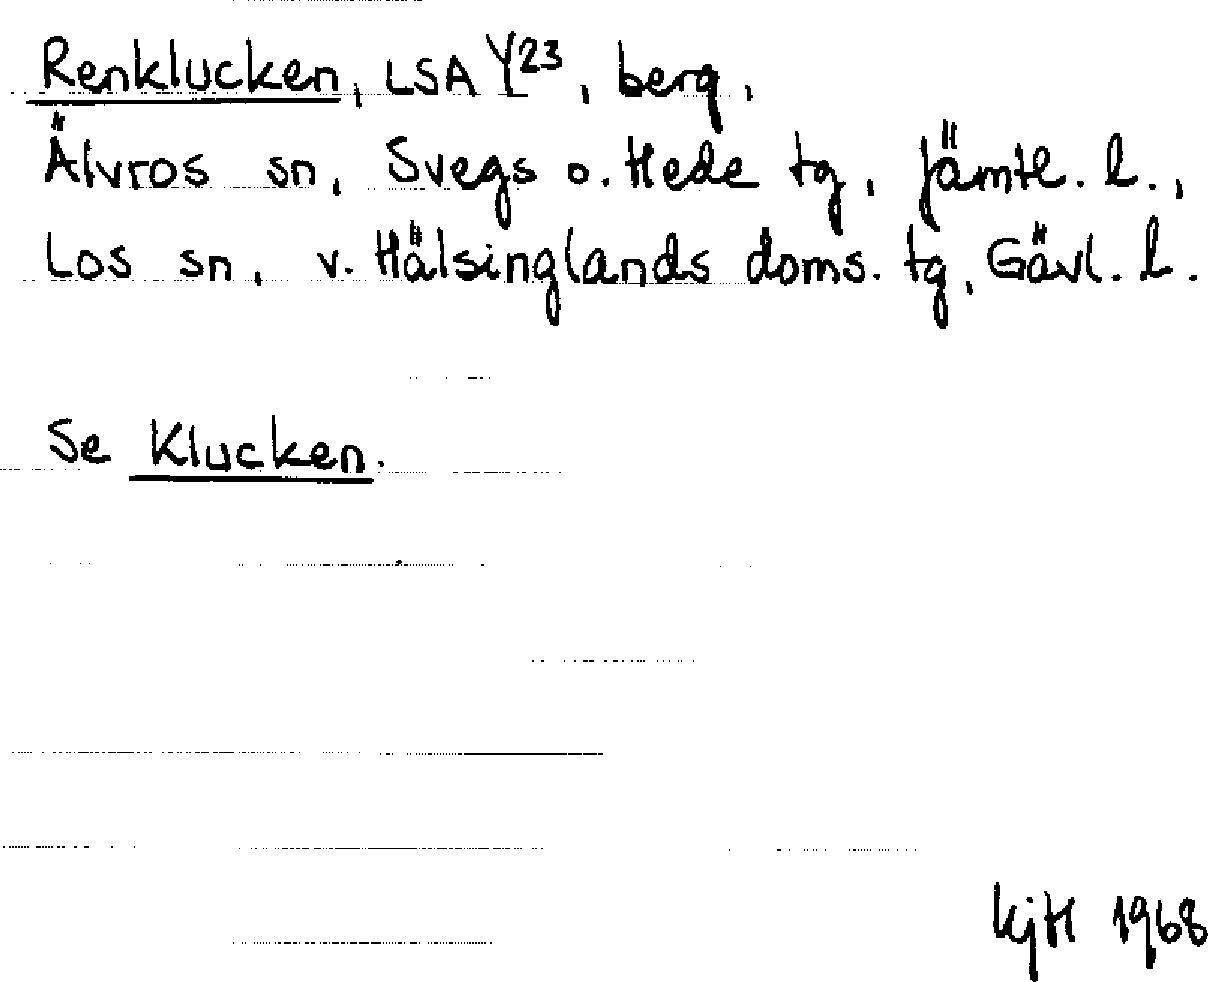 Renklucken, LSA Y23, berg,
Älvros sn, Svegs o. Hede tg, Jämtl. l.,
Los sn, v. Hälsinglands doms. tg, Gävl. l.
Se Klucken.
KjH 1968